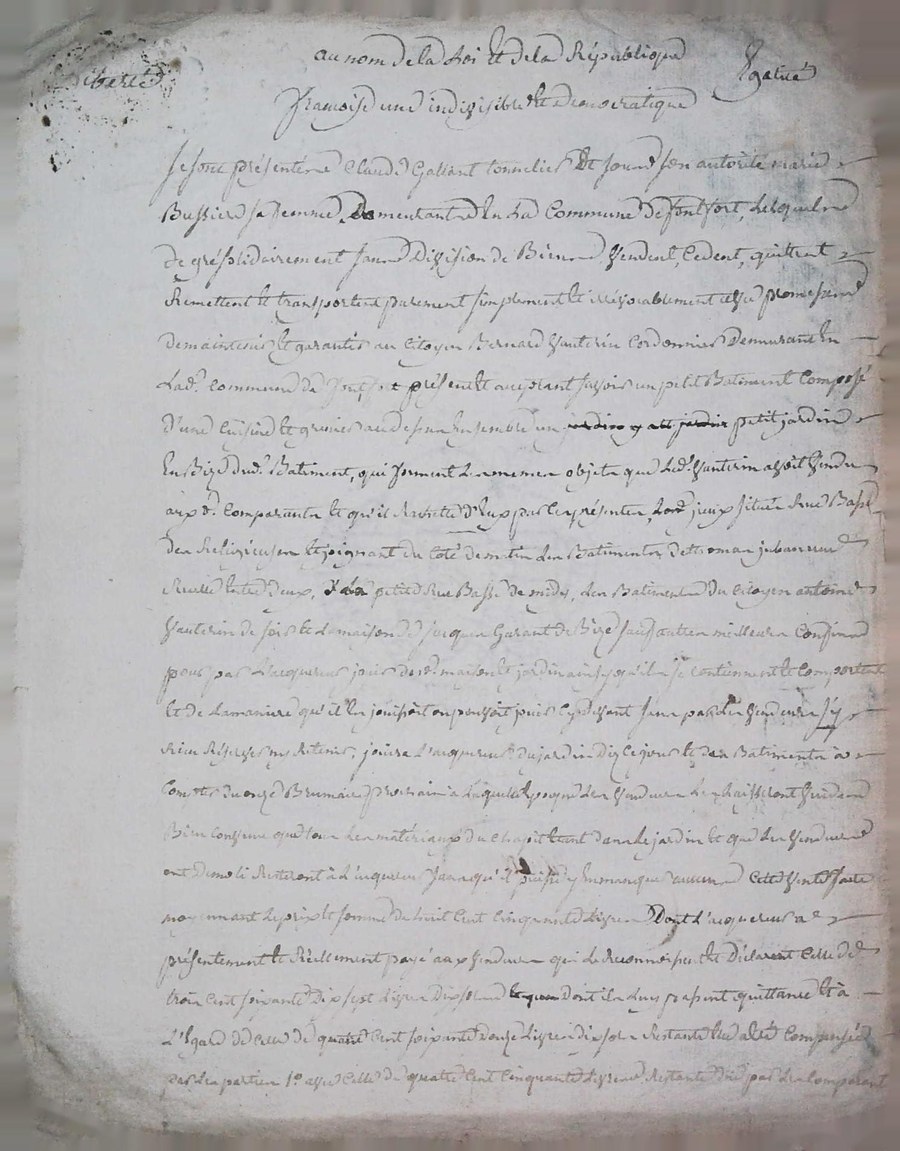 Liberté au nom de la Loi et de la République Egalité
françoise une indivisible et democratique
Se sont présenté Claude Gallant tonnelier et sous son autorité marie
Bussier sa femme, Demeurante En La Commune de fontfort, Lesquels
de gré solidairement sans Division de Biens Vendent, Cedent, quittent
Remettent et transportent purement simplement et irrévocablement avec promesse
de maintenir et garantir au Citoyen Bernard Vauterin Cordonnier Demeurant En
Lad.e Commune de fontfort présent et acceptant savoir un petit Batiment Composé
D'une Cuisine et grenier au dessus Ensemble un petit jardin
En Bize dud. Batiment, qui forment Les memes objets que Led. Vauterin avoit Vendu
aux d. Comparants et qu'il Rachete d'Eux par Ces présentes, Lesd. jeux situés Rue Basse
des Religieuses et joignant du Coté de matin Les Batiments
Ruelle Entre deux, La petite Rue Basse de midy, Les Batiments du Citoyen antoine
Vauterin de soir et La maison de jacques Garant de Bize sauf autres meilleurs Confins
pour par L'acquereur jouir desd. maison et jardin ainsy qu'ils se contiennent et Comportent
Et de La maniere qu'il En jouissoit ou pouvoit jouir Cy devant sans par Les Vendeurs s'y
Rien Reserver ny Retenir, jouira L'acquereur du jardin Dez Ce jour et des Batiments à
Compter du onze Brumaire prochain à Laquelle Epoque Les Vendeurs Les Laisseront Vuides
Bien Convenu que tous Les matériaux du Chapit Etant dans Le jardin Et que Les Vendeurs
ont Demoli Resteront à L'acquereur sans qu'il puisse y En manquer aucun Cette Vente faite
moyennant Le prix et somme de huit Cent Cinquante Livres Dont L'acquereur a
présentement et Réellement payé aux Vendeurs qui Le Reconnoissent et Déclarent Celle de
trois Cent soixante Dix sept Livres Dix sols Dont ils Luy passent quittance Et à
L'Egard de Celle de quatre Cent soixante Douze Livres dix sols Restante Elle a été Compensée
par Les parties 1.o avec Celle de quatre Cent Cinquante Livres Restante Due par Les Comparants